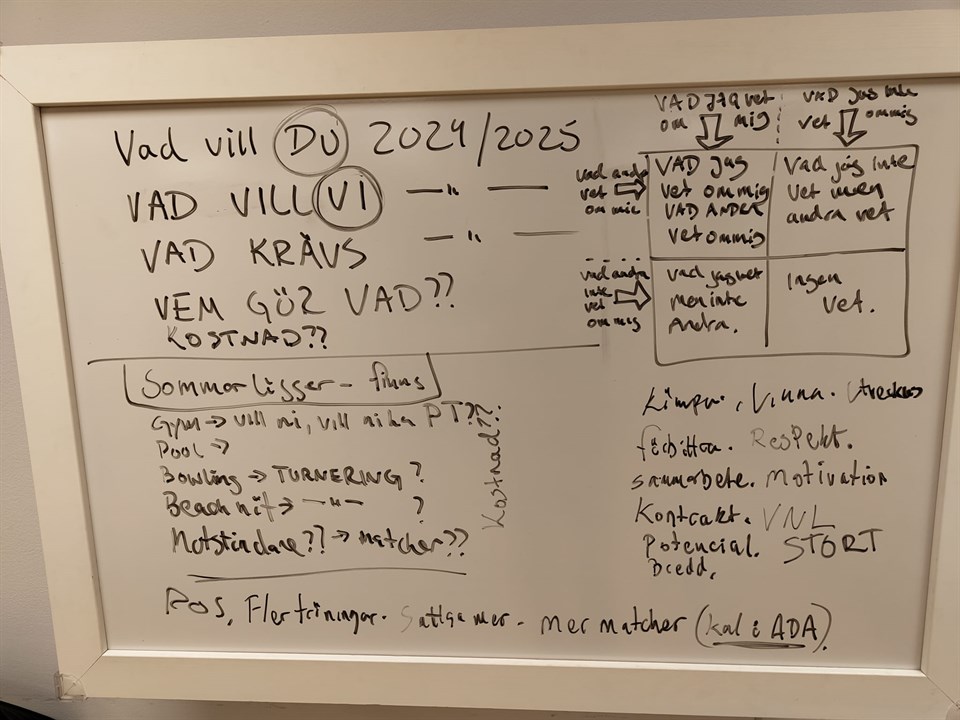 Vad vill DU 2024/2025
VAD VILL VI —"—
VAD KRÄVS —"—
VEM GÖR VAD??
KOSTNAD??
VAD JAG vet
om mig
VAD jag inte
vet om mig
vad andra
vet
om mig
VAD jag
vet om mig
VAD ANDRA
vet om mig
Vad jag inte
vet men
andra vet
vad andra
inte
vet
om mig
vad jag vet
men inte
Andra.
Ingen
vet.
Sommarligger - finns
Gym → vill ni, vill ni ha PT??
Pool →
Bowling → TURNERING ?
Beach → —"— ?
Motståndare?? → matcher??
Kostnad??
Vinna.
förbättra. Respekt.
sammarbete. Motivation
Kontrakt. VNL
Potencial. STORT
Bredd.
POS, Fler träningar. mer - mer matcher (kal i ADA).